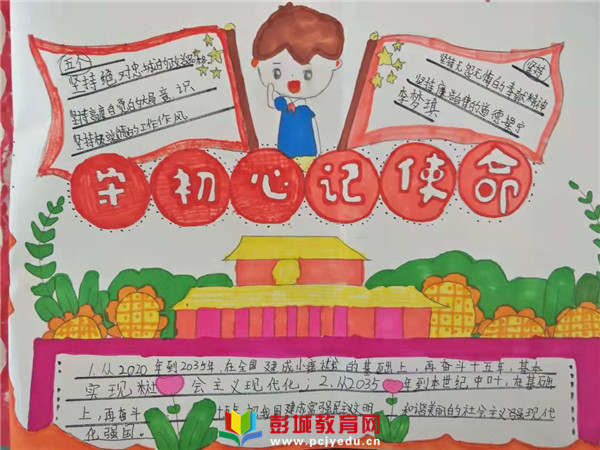 五个
坚持
坚持绝对忠诚的政治品格
坚持高度自觉的大局意识
坚持极端负责的工作作风
坚持无怨无悔的奉献精神
坚持廉洁自律的道德操守
李梦琪
守初心记使命
1.从2020年到2035年,在全国建成小康社会的基础上,再奋斗十五年,基本
实现社会主义现代化;2.从2035年到本世纪中叶,在基础
上,再奋斗十五年,把我国建成富强民主文明和谐美丽的社会主义强现代
化强国。
彭城教育网
www.pcjyedu.cn